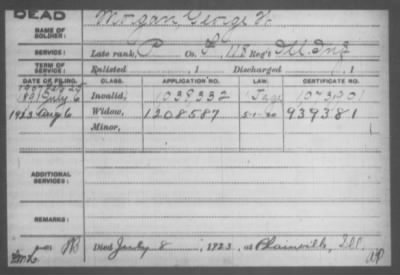 DEAD
NAME OF SOLDIER: Morgan George
SERVICE: Late rank, P Co. F, 118 Reg't Ill. Inf.
TERM OF SERVICE: Enlisted , 1 Discharged , 1
DATE OF FILING. CLASS. APPLICATION NO. LAW. CERTIFICATE NO.
1891 July 6 Invalid, 1039332
1923 Aug 6 Widow, 1208587 5-1-20 939381
Minor,
ADDITIONAL SERVICES:
REMARKS:
Died July 8, 1923, at Plainville, Ill.